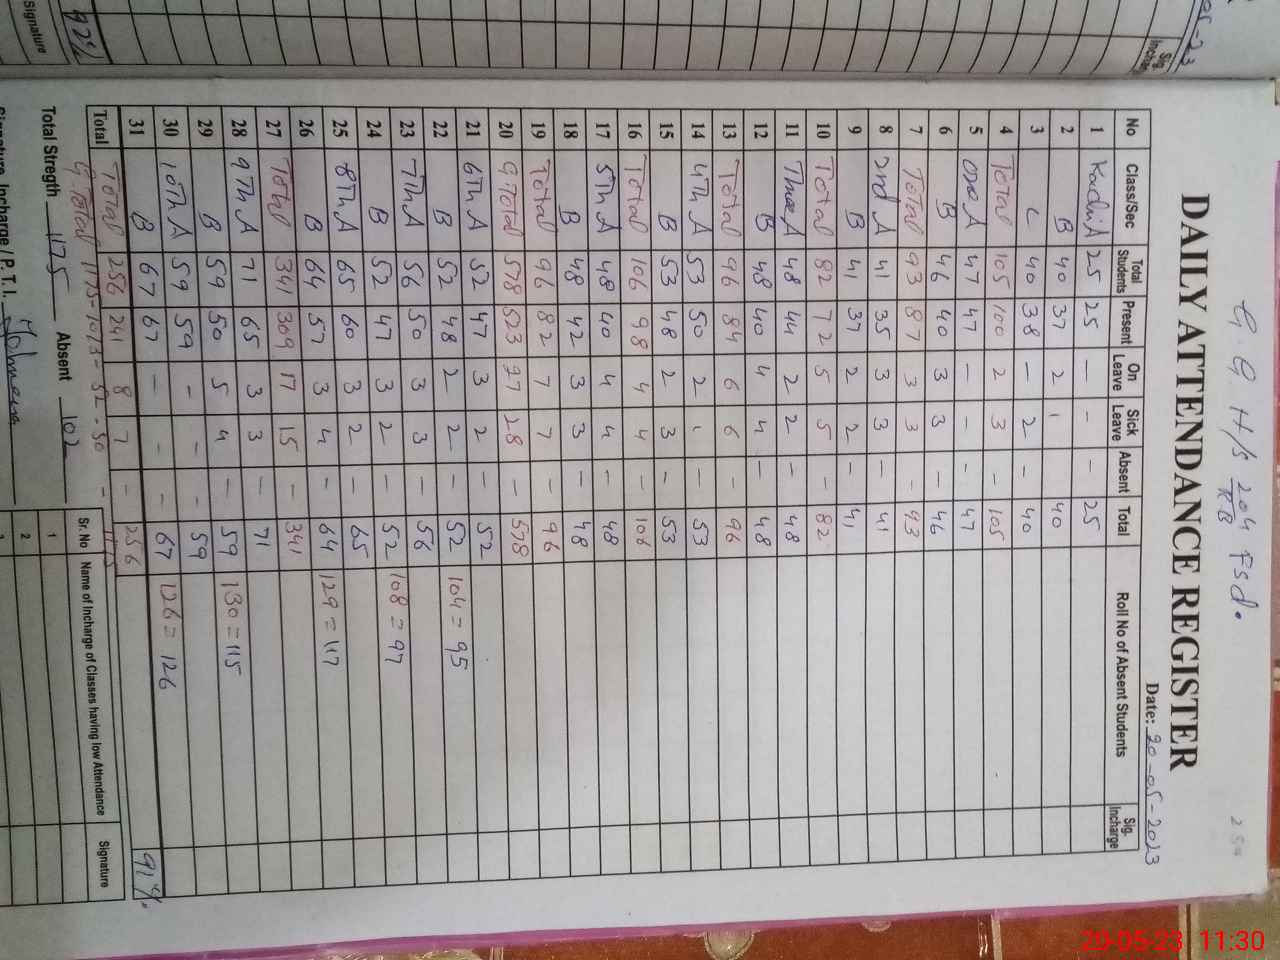 G.G H/s 204 RB Fsd.
DAILY ATTENDANCE REGISTER
Date: 20-05-2023
No Class/Sec Total Students Present On Leave Sick Leave Absent Total Roll No of Absent Students Sig. Incharge
1 Kachi A 25 25 — - - 25
2 B 40 37 2 1 - 40
3 C 40 38 — 2 - 40
4 Total 105 100 2 3 - 105
5 One A 47 47 — - - 47
6 B 46 40 3 3 - 46
7 Total 93 87 3 3 - 93
8 2nd A 41 35 3 3 - 41
9 B 41 37 2 2 - 41
10 Total 82 72 5 5 - 82
11 Three A 48 44 2 2 - 48
12 B 48 40 4 4 - 48
13 Total 96 84 6 6 - 96
14 4th A 53 50 2 1 - 53
15 B 53 48 2 3 - 53
16 Total 106 98 4 4 - 106
17 5th A 48 40 4 4 - 48
18 B 48 42 3 3 - 48
19 Total 96 82 7 7 - 96
20 G Total 578 523 27 28 - 578
21 6th A 52 47 3 2 - 52
22 B 52 48 2 2 - 52 104 = 95
23 7th A 56 50 3 3 56
24 B 52 47 3 2 - 52 108 = 97
25 8th A 65 60 3 2 - 65
26 B 64 57 3 4 - 64 129 = 117
27 Total 341 309 17 15 - 341
28 9th A 71 65 3 3 - 71
29 B 59 50 5 4 - 59 130 = 115
30 10th A 59 59 - - - 59
31 B 67 67 — - - 67 126 = 126
91%
Total Total 256 241 8 7 - 256
G.Total 1175-1073-52-50 - 1175
Total Stregth 1175 Absent 102
Signature Incharge / P.T.I.
Sr. No Name of Incharge of Classes having low Attendance Signature
1
2
3
Sig. Incharge
92%
Signature
20-05-23 11:30